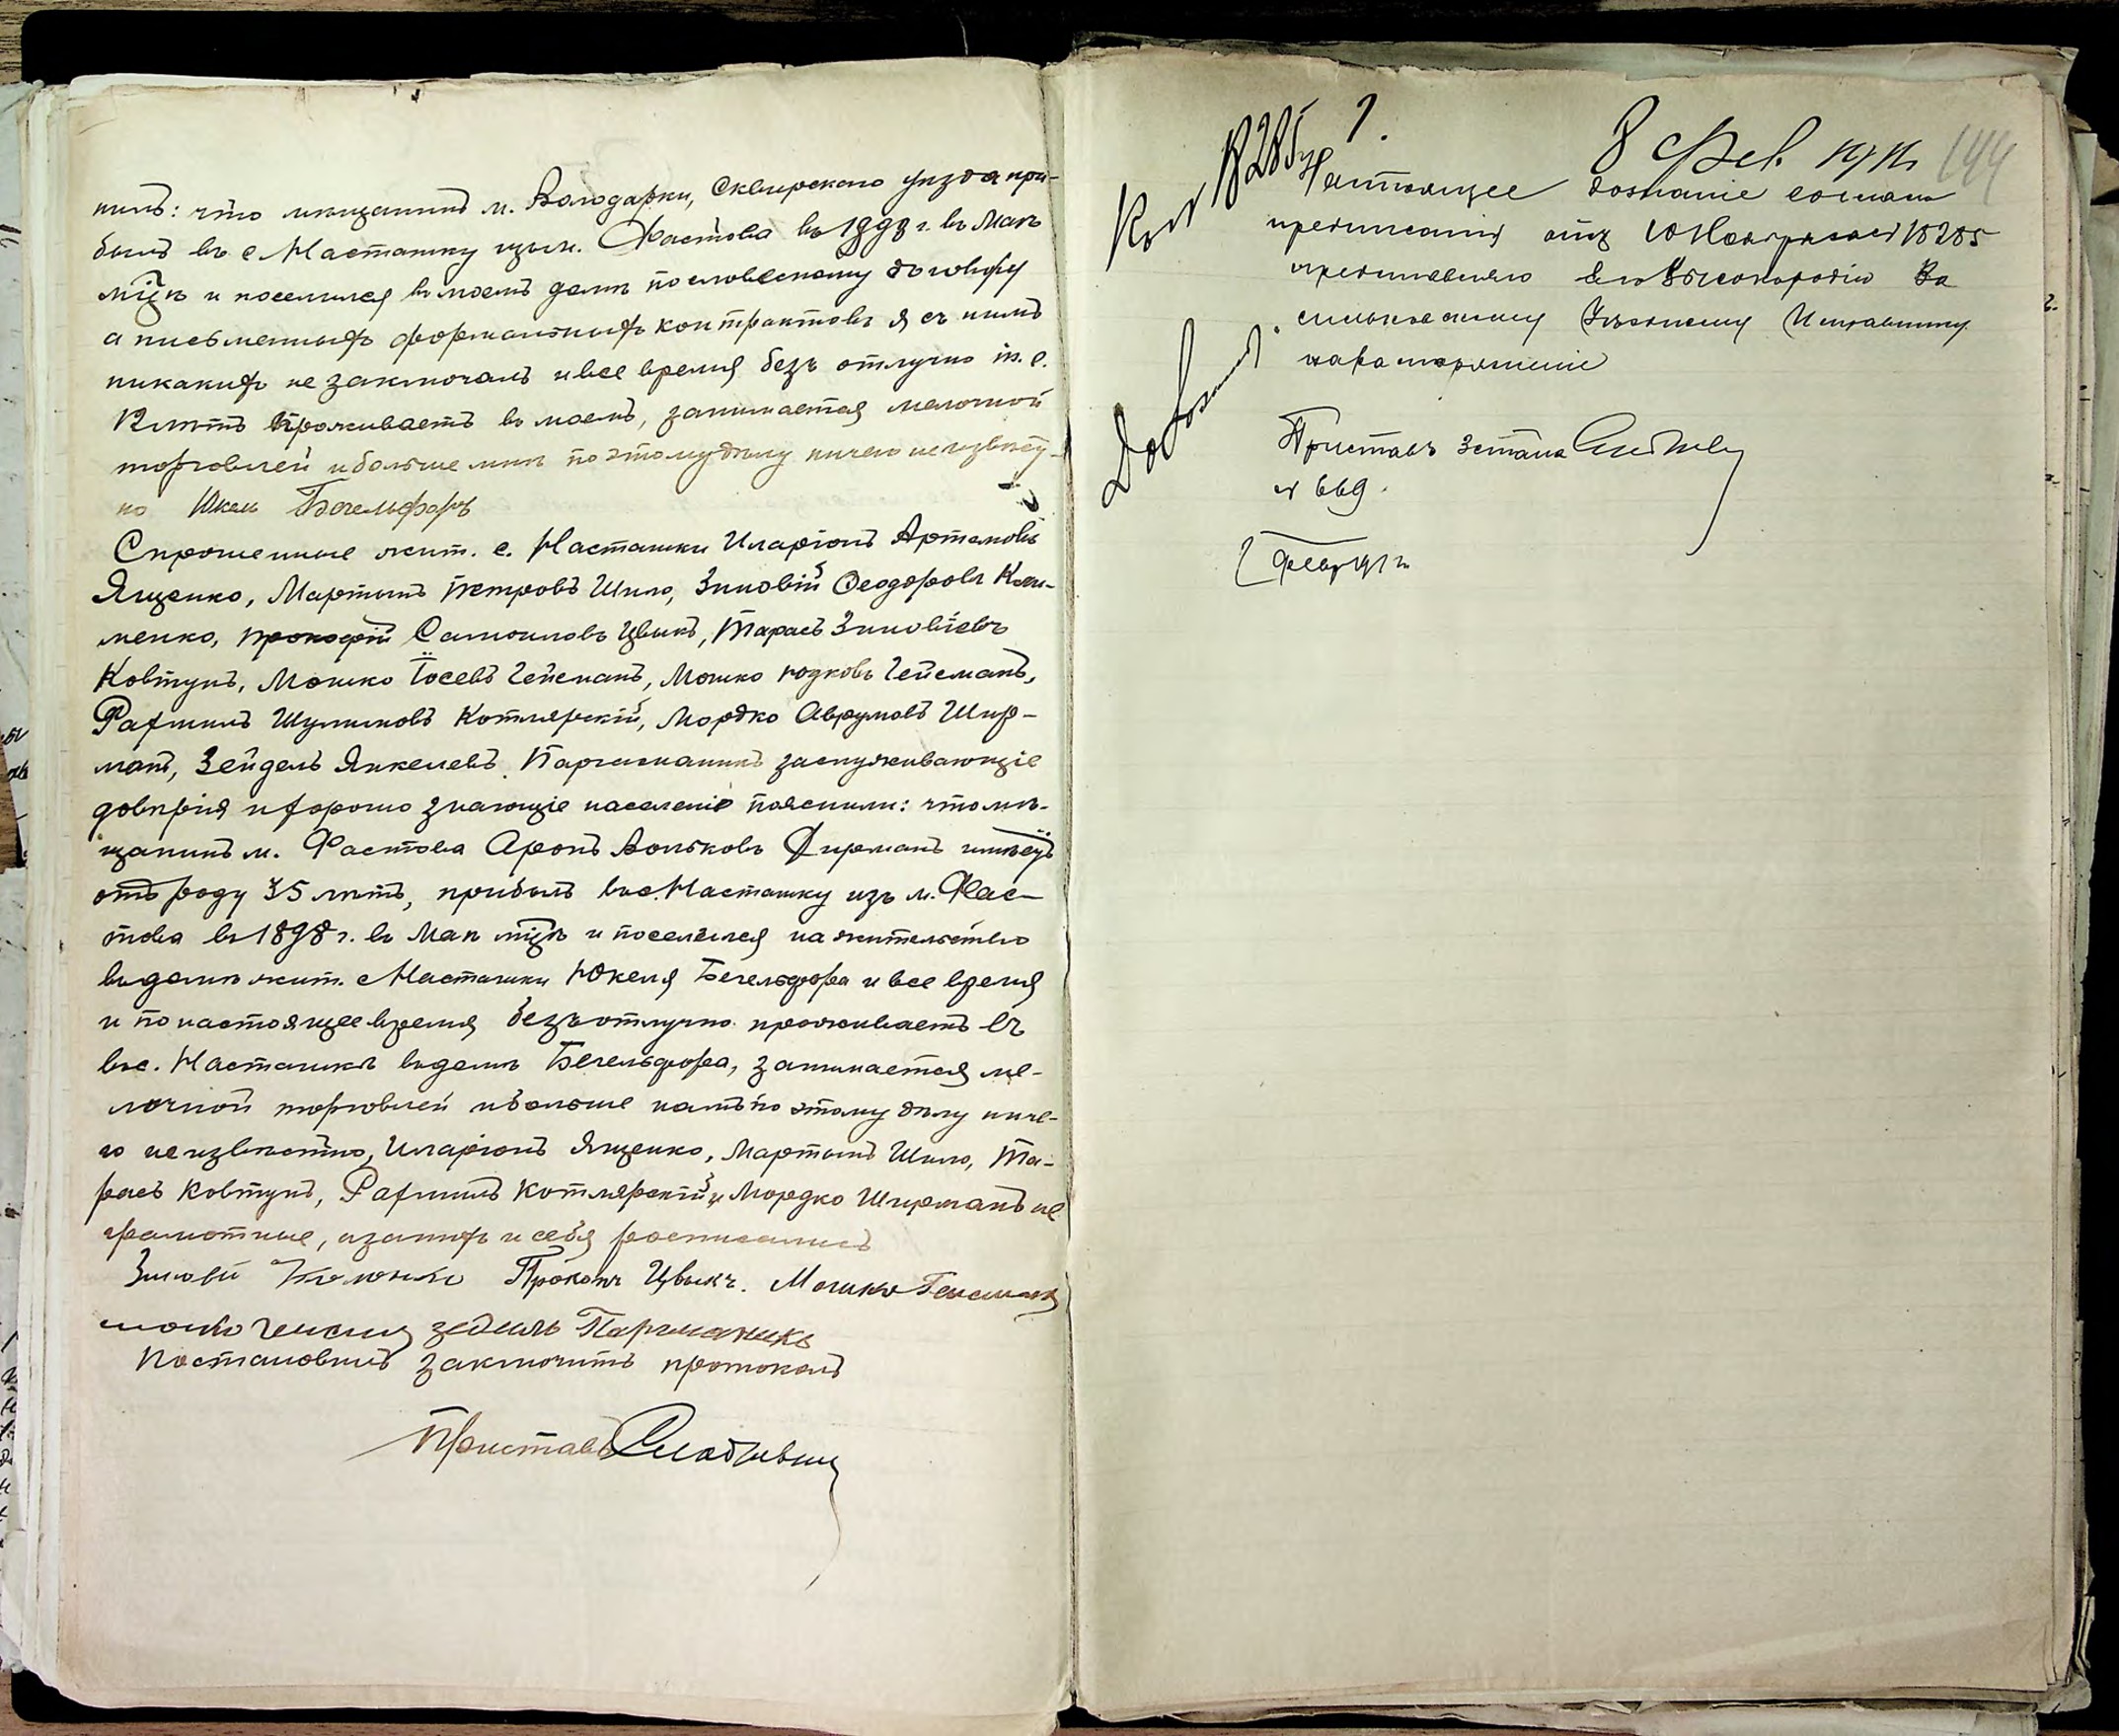 нилъ: что мещанинъ м. Володарки, Сквирскаго уезда при-
былъ въ с. Насташку изъ м. Фастова въ 1898 г. въ Маѣ
мцѣ и поселился въ моемъ домѣ по словесному договору
а письменныхъ формальныхъ контрактовъ я съ нимъ
никакихъ не заключалъ и все время безъ отлучно т. е.
12 лѣтъ проживаетъ въ моемъ, занимается мелочной
торговлей и больше мнѣ по этому дѣлу ничего неизвест-
но Юкель Бегельфоръ
Спрошенные жит. с. Насташки Иларіонъ Артемовъ
Ященко, Мартынъ Петровъ Шило, Зиновій Феодоровъ Кли-
менко, Прокофій Самоиловъ Цвыкъ, Тарасъ Зиновіевъ
Ковтунъ, Мошко Іосевъ Гейсманъ, Мошко Юдковъ Гейсманъ,
Рафаилъ Шулимовъ Котлярскій, Мордко Аврумовъ Шир-
манъ, Зейдель Янкелевъ Паргаманикъ заслуживающіе
довѣрія и хорошо знающіе населеніе пояснили: что мѣ-
щанинъ м. Фастова Аронъ Вольковъ Фирманъ имѣетъ
отъ роду 35 лѣтъ, прибылъ въ с. Насташку изъ м. Фас-
това въ 1898 г. въ Маѣ мцѣ и поселился на жительство
въ домѣ жит. с Насташки Юкеля Бегельфора и все время
и по настоящее время безъ отлучно проживаетъ въ
въ с. Насташкѣ въ домѣ Бегельфора, занимается ме-
лочной торговлей и больше намъ по этому дѣлу ниче-
го неизвѣстно, Иларіонъ Ященко, Мартынъ Шило, Та-
расъ Ковтунъ, Рафаилъ Котлярскій и Мордко Ширманъ не
грамотные, а за нихъ и себя росписались
Зиновй Прокопъ Цвыкъ. Мошко Гейсманъ
зедель Паргманикъ
Постановилъ заключить протоколъ
Приставъ
18285
8 Фев. 144
Настоящее дознаніе согласно
предписанія отъ 10 Ноября за № 18285
представляю Его Высокородію Ва
сильковскому Уѣздному Исправнику
Приставъ 3 стана
№ 669.